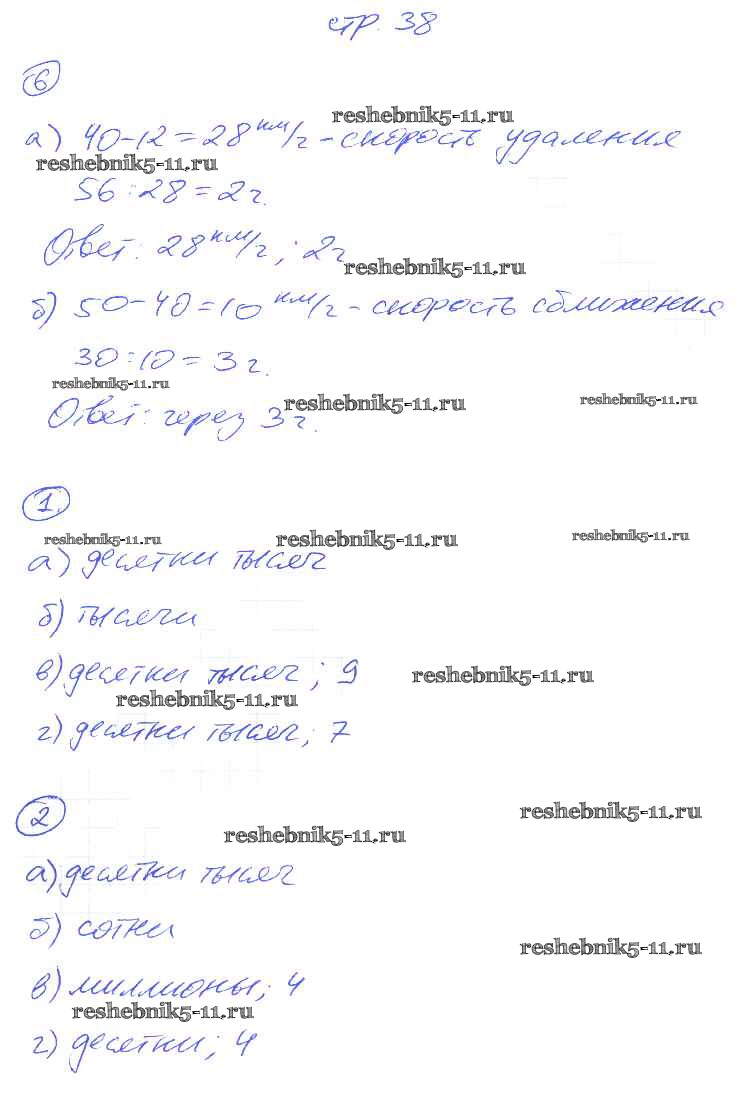 стр. 38
6
reshebnik5-11.ru
а) 40-12=28 км/г - скорость удаления
reshebnik5-11.ru
56:28=2г.
Ответ: 28 км/г; 2г
reshebnik5-11.ru
б) 50-40=10 км/г - скорость сближения
30:10=3г.
reshebnik5-11.ru
reshebnik5-11.ru
reshebnik5-11.ru
Ответ: через 3г.
1.
reshebnik5-11.ru
reshebnik5-11.ru
reshebnik5-11.ru
а) десятки тысяч
б) тысячи
в) десятки тысяч; 9
reshebnik5-11.ru
reshebnik5-11.ru
г) десятки тысяч; 7
2
reshebnik5-11.ru
reshebnik5-11.ru
а) десятки тысяч
б) сотни
reshebnik5-11.ru
в) миллионы; 4
reshebnik5-11.ru
г) десятки; 4